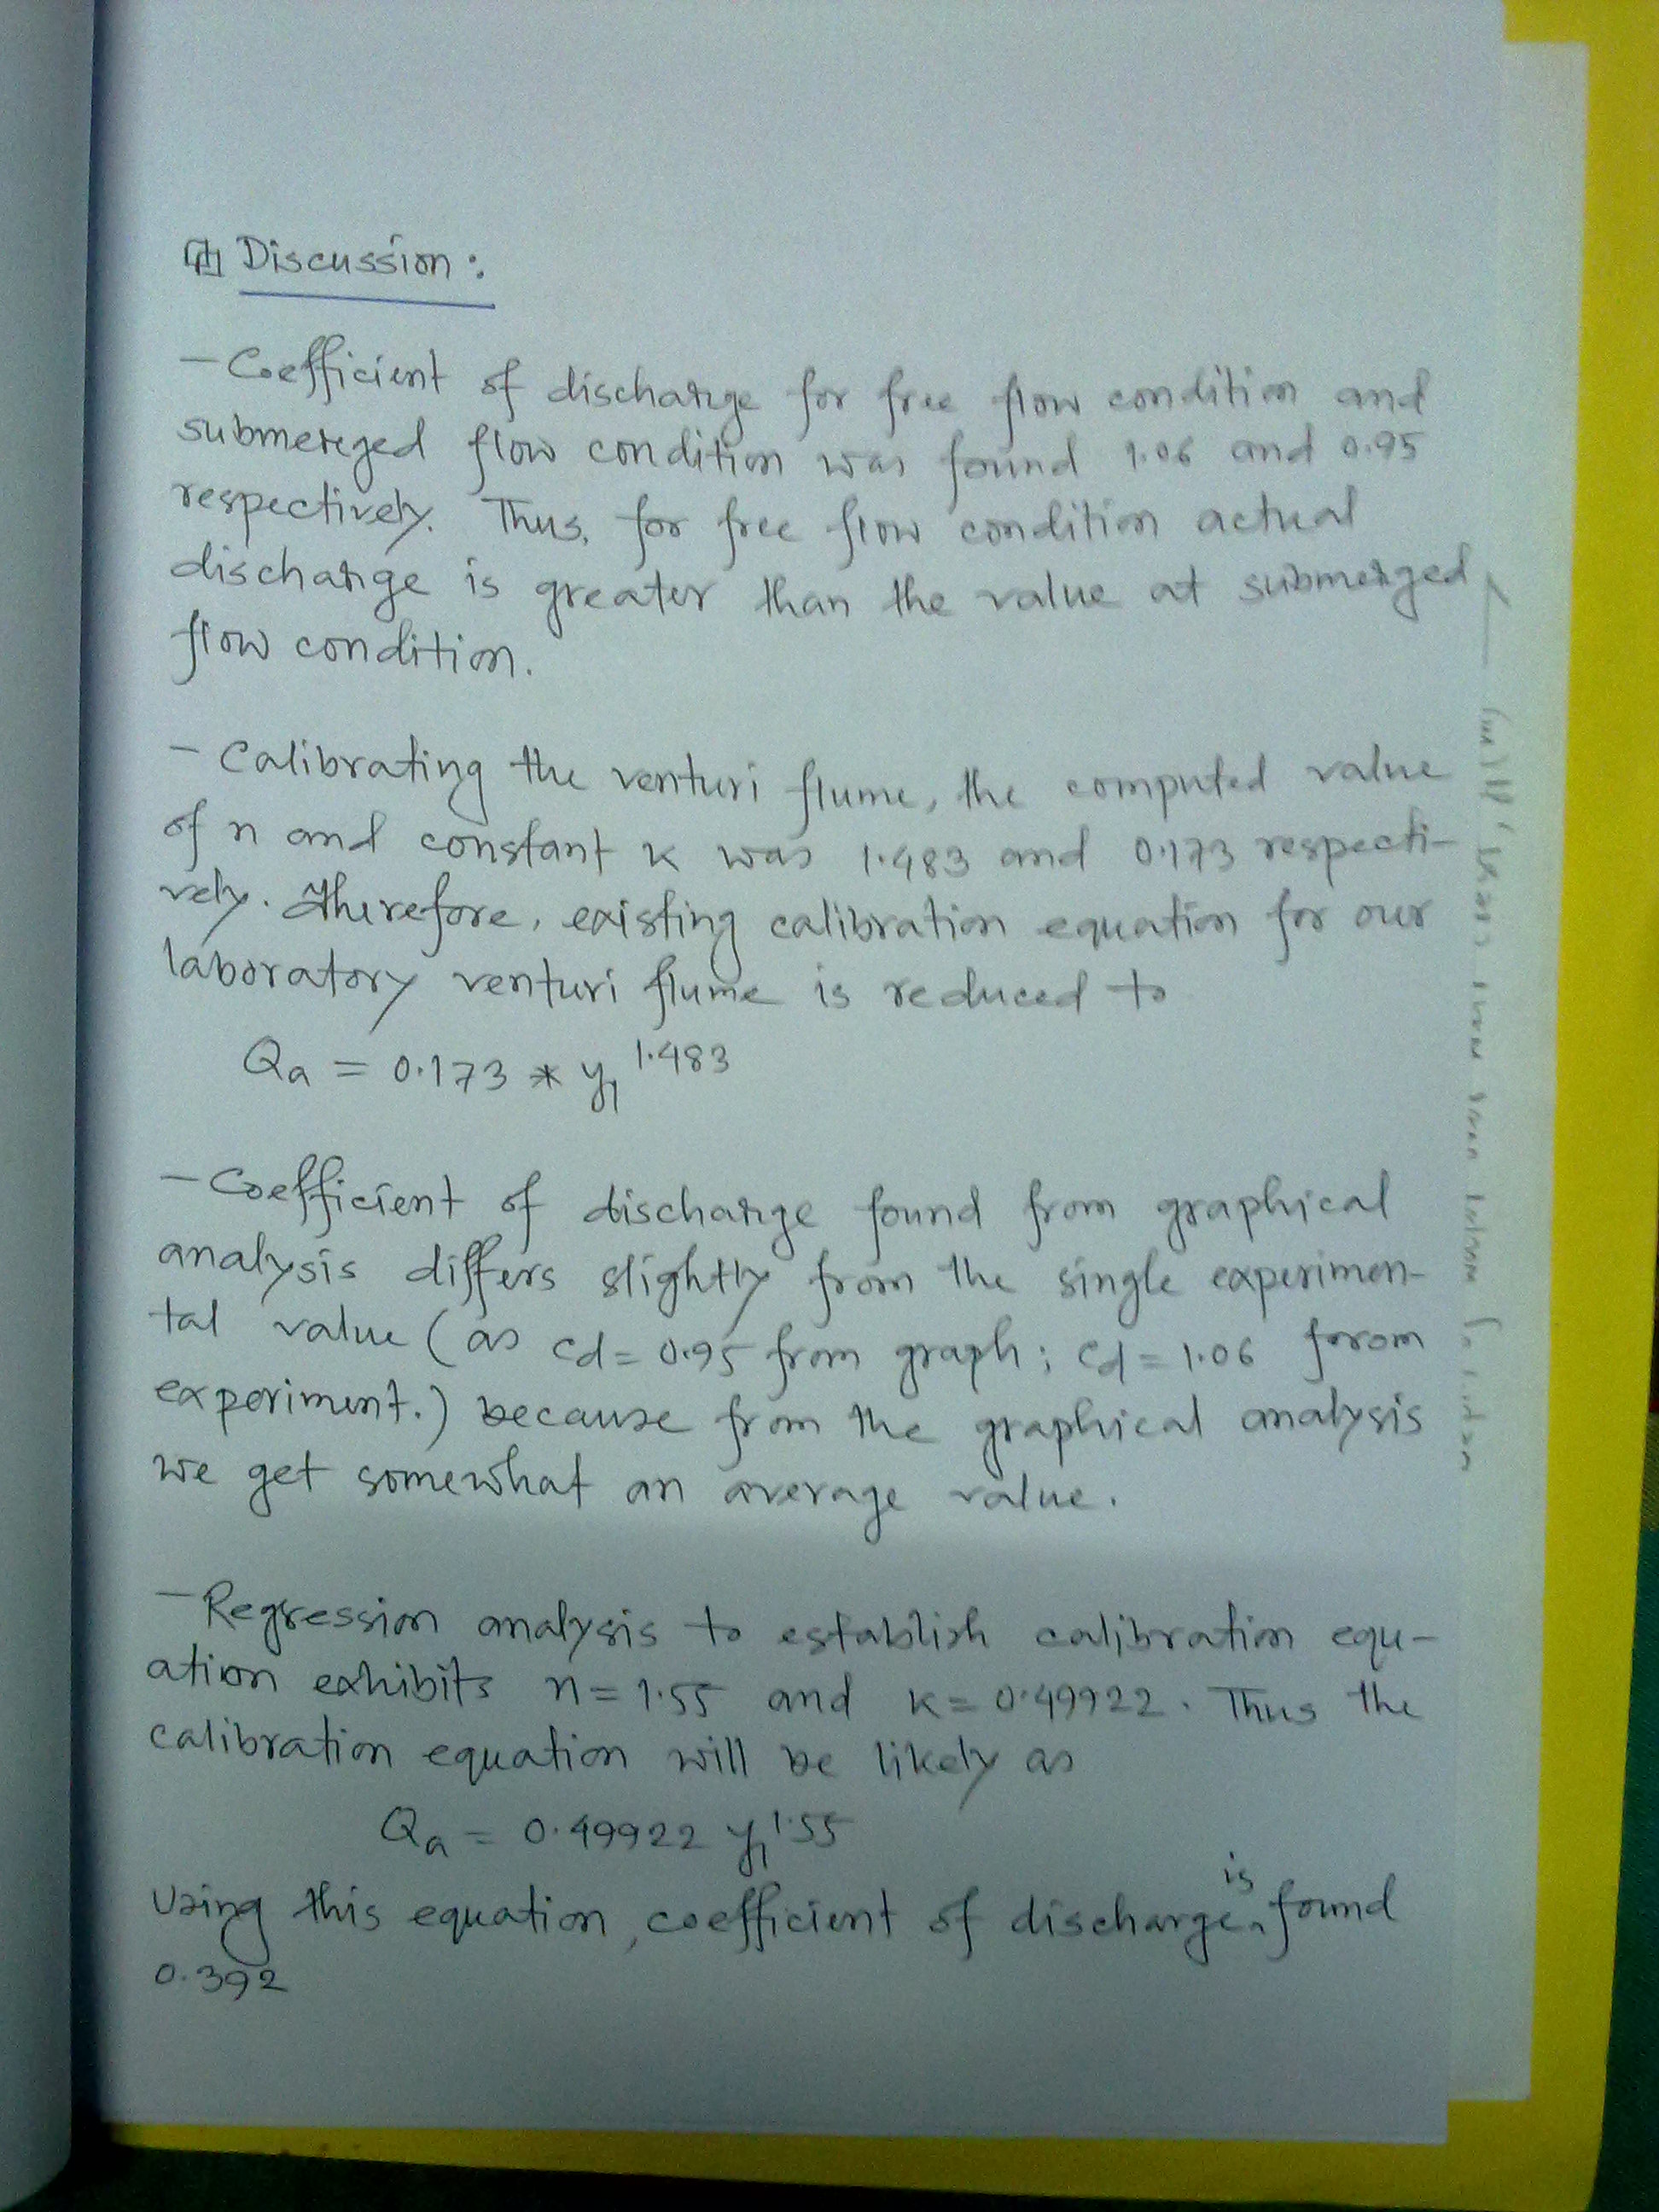 Discussion:
- Coefficient of discharge for free flow condition and
submerged flow condition was found 1.06 and 0.95
respectively. Thus, for free flow condition actual
discharge is greater than the value at submerged
flow condition.
- Calibrating the venturi flume, the computed value
of n and constant K was 1.483 and 0.173 respecti-
vely. Therefore, existing calibration equation for our
laboratory venturi flume is reduced to
Qa = 0.173 * y₁^1.483
- Coefficient of discharge found from graphical
analysis differs slightly from the single experimen-
tal value (as Cd = 0.95 from graph; Cd = 1.06 from
experiment.) because from the graphical analysis
we get somewhat an average value.
- Regression analysis to establish calibration equ-
ation exhibits n = 1.55 and K = 0.49922. Thus the
calibration equation will be likely as
Qa = 0.49922 y₁^1.55
Using this equation, coefficient of discharge is found
0.392